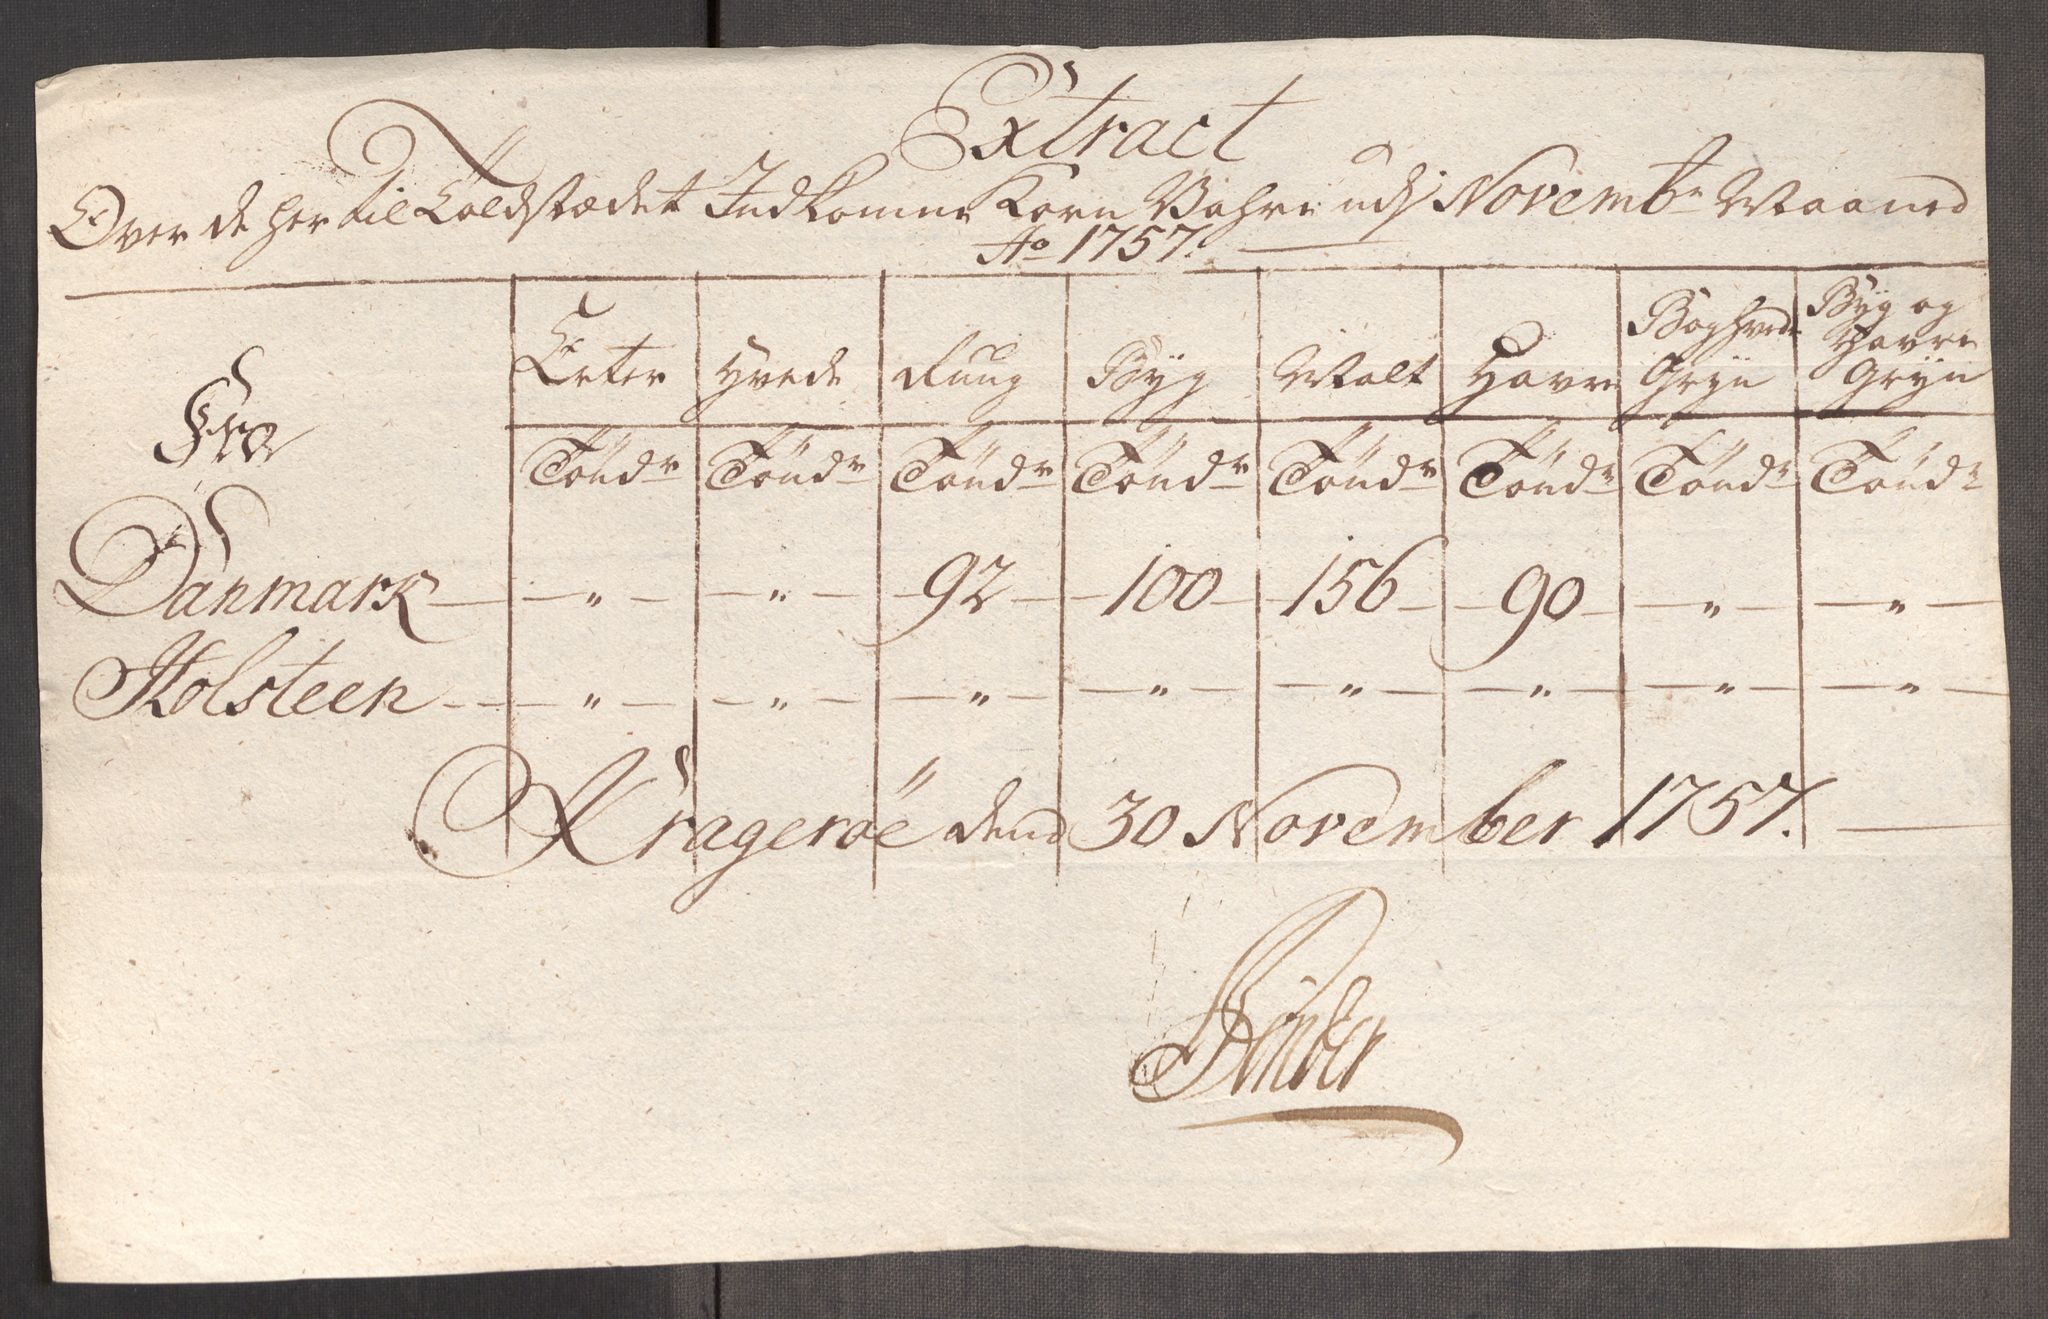 Extract
Over de her til Toldstædet Indkomne Korn Vahre udj Novembr Maaned
Ao 1757.
Fra
Erter Hvede Rúug Byg Malt Havre Boghvede Grÿn Byg og Havre Grÿn
Töndr Töndr Töndr Töndr Töndr Töndr Töndr Töndr
Danmark — " — — " — 92 — 100 — 156 — 90 — " — — " —
Holsteen — " — — " — — " — — " — — " — — " — — " — — " —
Krageröe dend 30 November 1757.